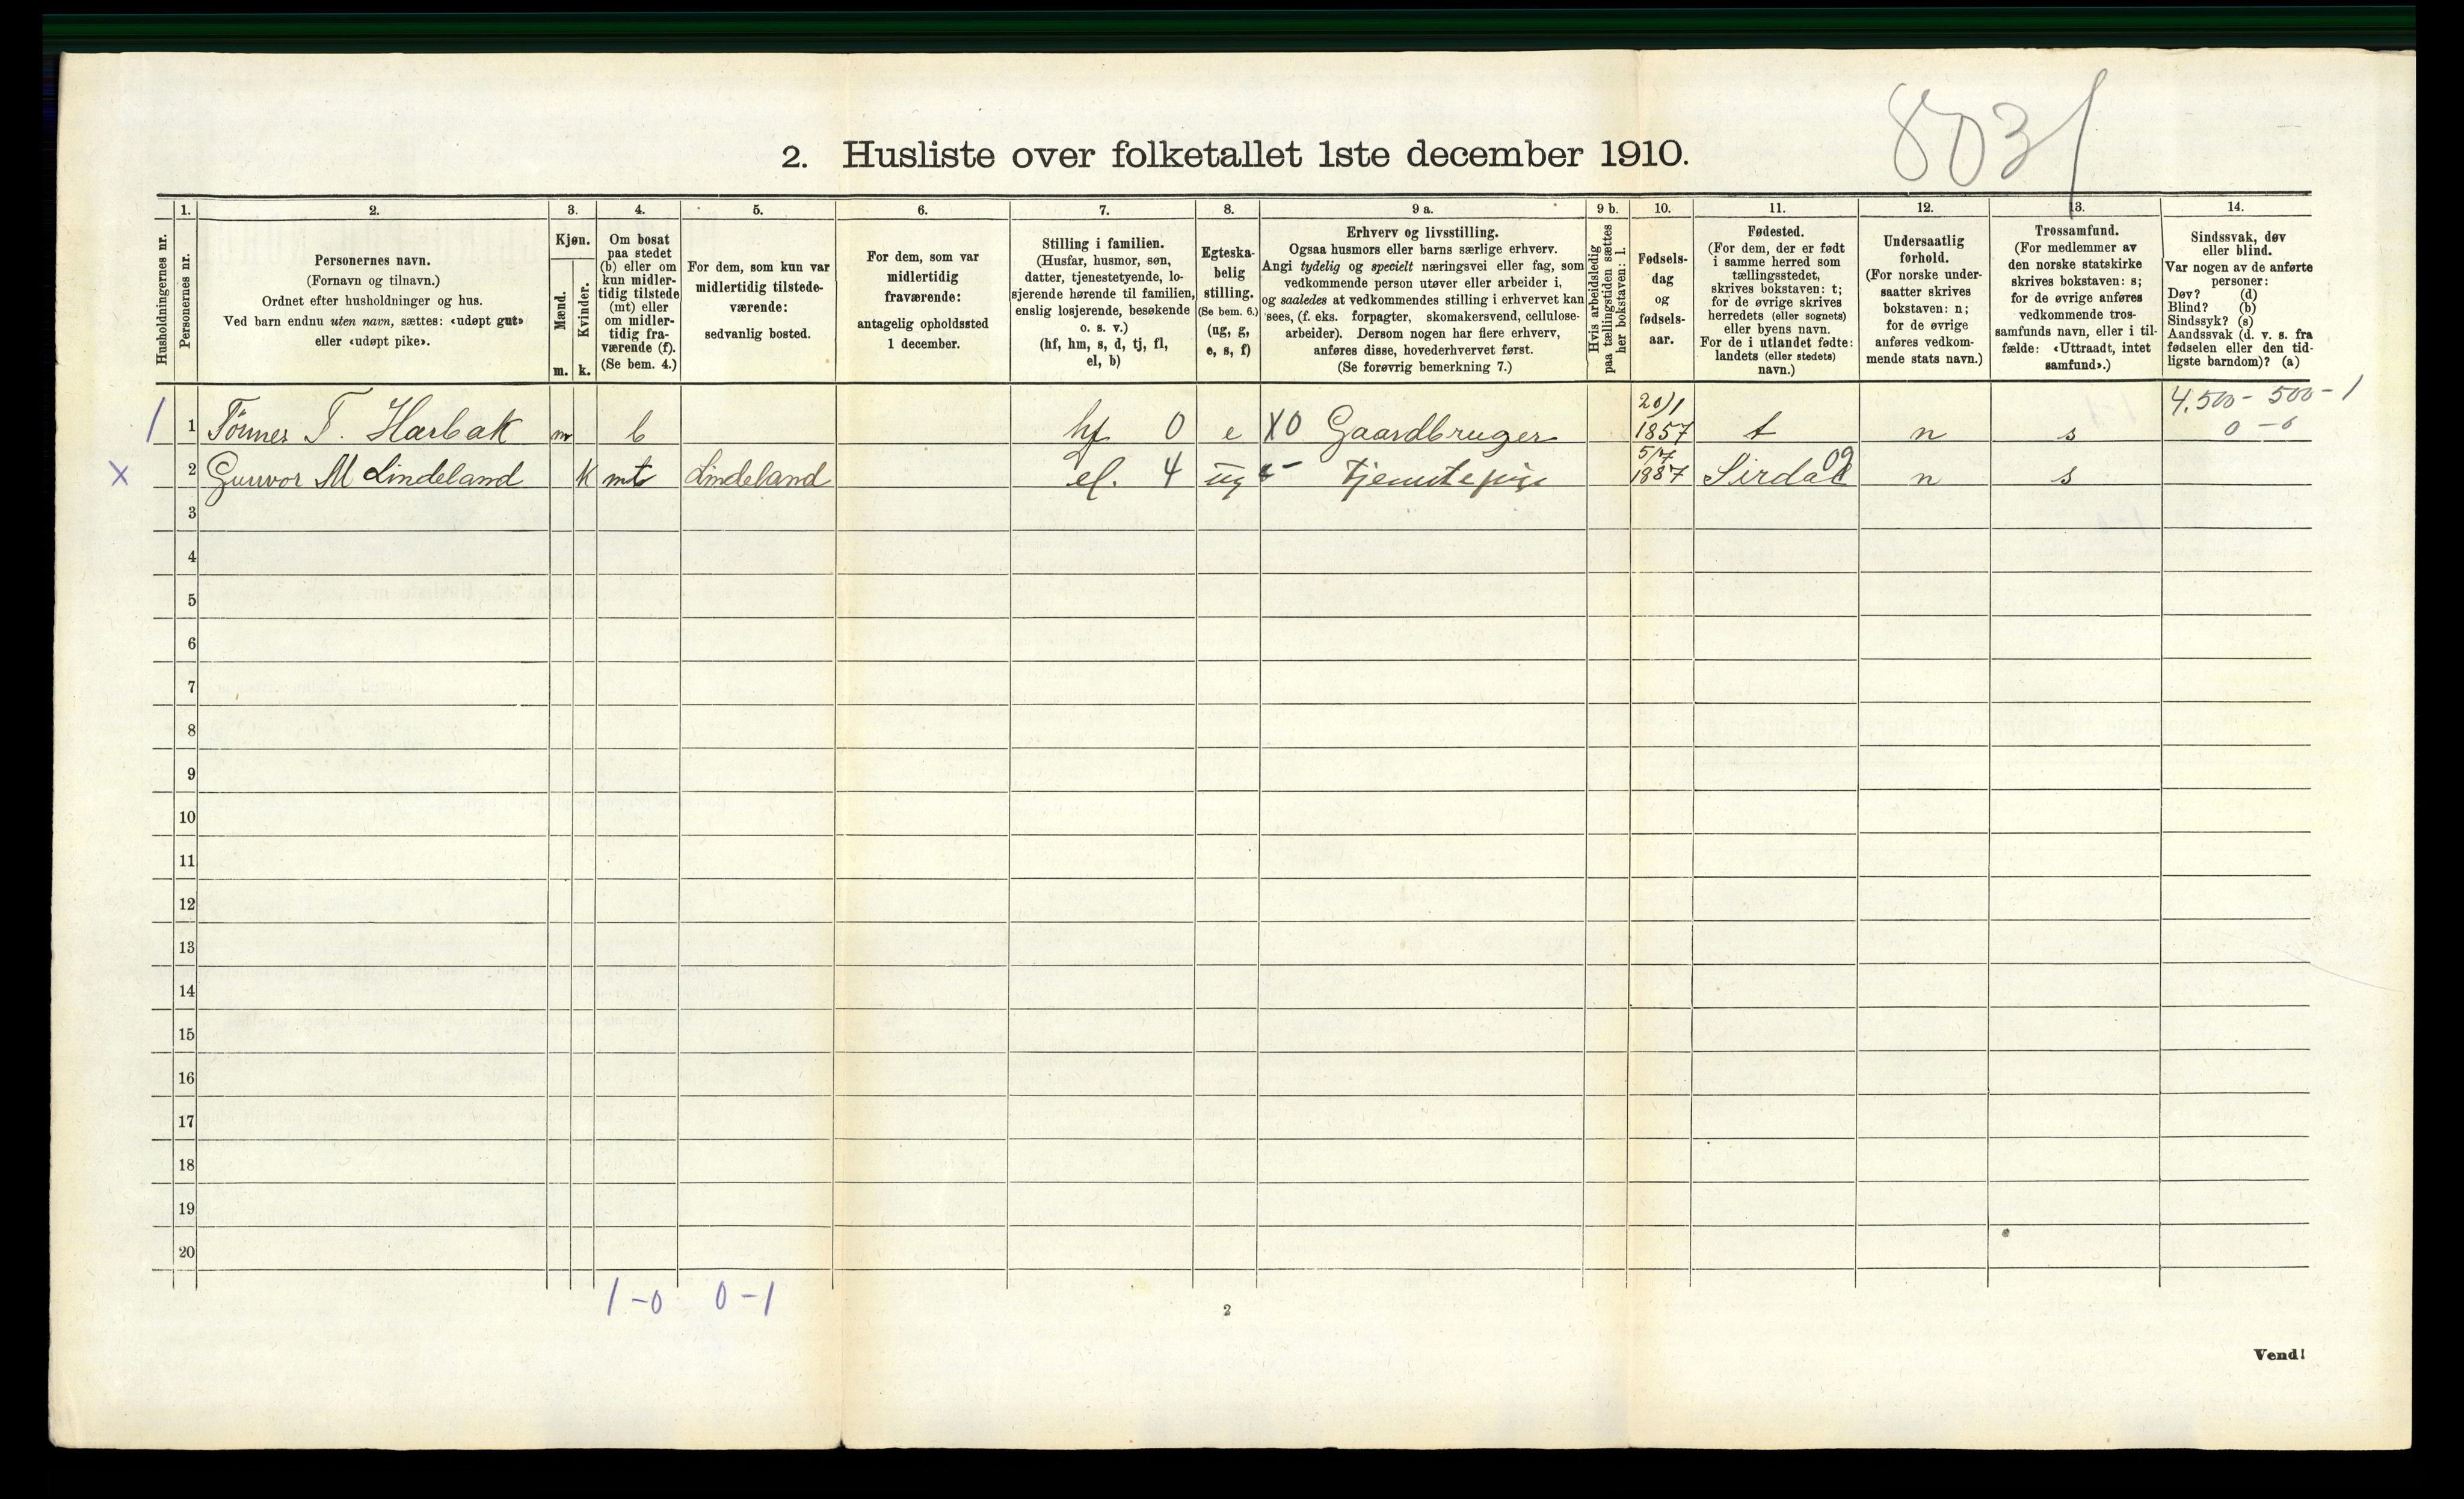 8031
2. Husliste over folketallet 1ste december 1910.
Husholdningernes nr.
1.
Personernes nr.
2.
Personernes navn.
(Fornavn og tilnavn.)
Ordnet efter husholdninger og hus.
Ved barn endnu uten navn, sættes: «udøpt gut»
eller «udøpt pike».
3.
Kjøn.
Mænd.
Kvinder.
m. k.
4.
Om bosat
paa stedet
(b) eller om
kun midler-
tidig tilstede
(mt) eller
om midler-
tidig fra-
værende (f).
(Se bem. 4.)
5.
For dem, som kun var
midlertidig tilstede-
værende:
sedvanlig bosted.
6.
For dem, som var
midlertidig
fraværende:
antagelig opholdssted
1 december.
7.
Stilling i familien.
(Husfar, husmor, søn,
datter, tjenestetyende, lo-
sjerende hørende til familien,
enslig losjerende, besøkende
o. s. v.)
(hf, hm, s, d, tj, fl,
el, b)
8.
Egteska-
belig
stilling.
(Se bem. 6.)
(ug, g,
e, s, f)
9 a.
Erhverv og livsstilling.
Ogsaa husmors eller barns særlige erhverv.
Angi tydelig og specielt næringsvei eller fag, som
vedkommende person utøver eller arbeider i,
og saaledes at vedkommendes stilling i erhvervet kan
sees, (f. eks. forpagter, skomakersvend, cellulose-
arbeider). Dersom nogen har flere erhverv,
anføres disse, hovederhvervet først.
(Se forøvrig bemerkning 7.)
9 b.
Hvis arbeidsledig
paa tællingstiden sættes
her bokstaven: l.
10.
Fødsels-
dag
og
fødsels-
aar.
11.
Fødested.
(For dem, der er født
i samme herred som
tællingsstedet,
skrives bokstaven: t;
for de øvrige skrives
herredets (eller sognets)
eller byens navn.
For de i utlandet fødte:
landets (eller stedets)
navn.)
12.
Undersaatlig
forhold.
(For norske under-
saatter skrives
bokstaven: n;
for de øvrige
anføres vedkom-
mende stats navn.)
13.
Trossamfund.
(For medlemmer av
den norske statskirke
skrives bokstaven: s;
for de øvrige anføres
vedkommende tros-
samfunds navn, eller i til-
fælde: «Uttraadt, intet
samfund».)
14.
Sindssvak, døv
eller blind.
Var nogen av de anførte
personer:
Døv? (d)
Blind? (b)
Sindssyk? (s)
Aandssvak (d. v. s. fra
fødselen eller den tid-
ligste barndom)? (a)
20/1 4.500 - 500 - 1
1 1 Tönnes T. Harbak m b hf 0 e X0 Gaardbruger 1857 t n s 0 - 0
5/7 09
X 2 Gunvor M Lindeland k mt Lindeland el. 4 ug Tjenestepige 1887 Sirdal n s
3
4
5
6
7
8
9
10
11
12
13
14
15
16
17
18
19
20
1 - 0 0 - 1
2
Vend!